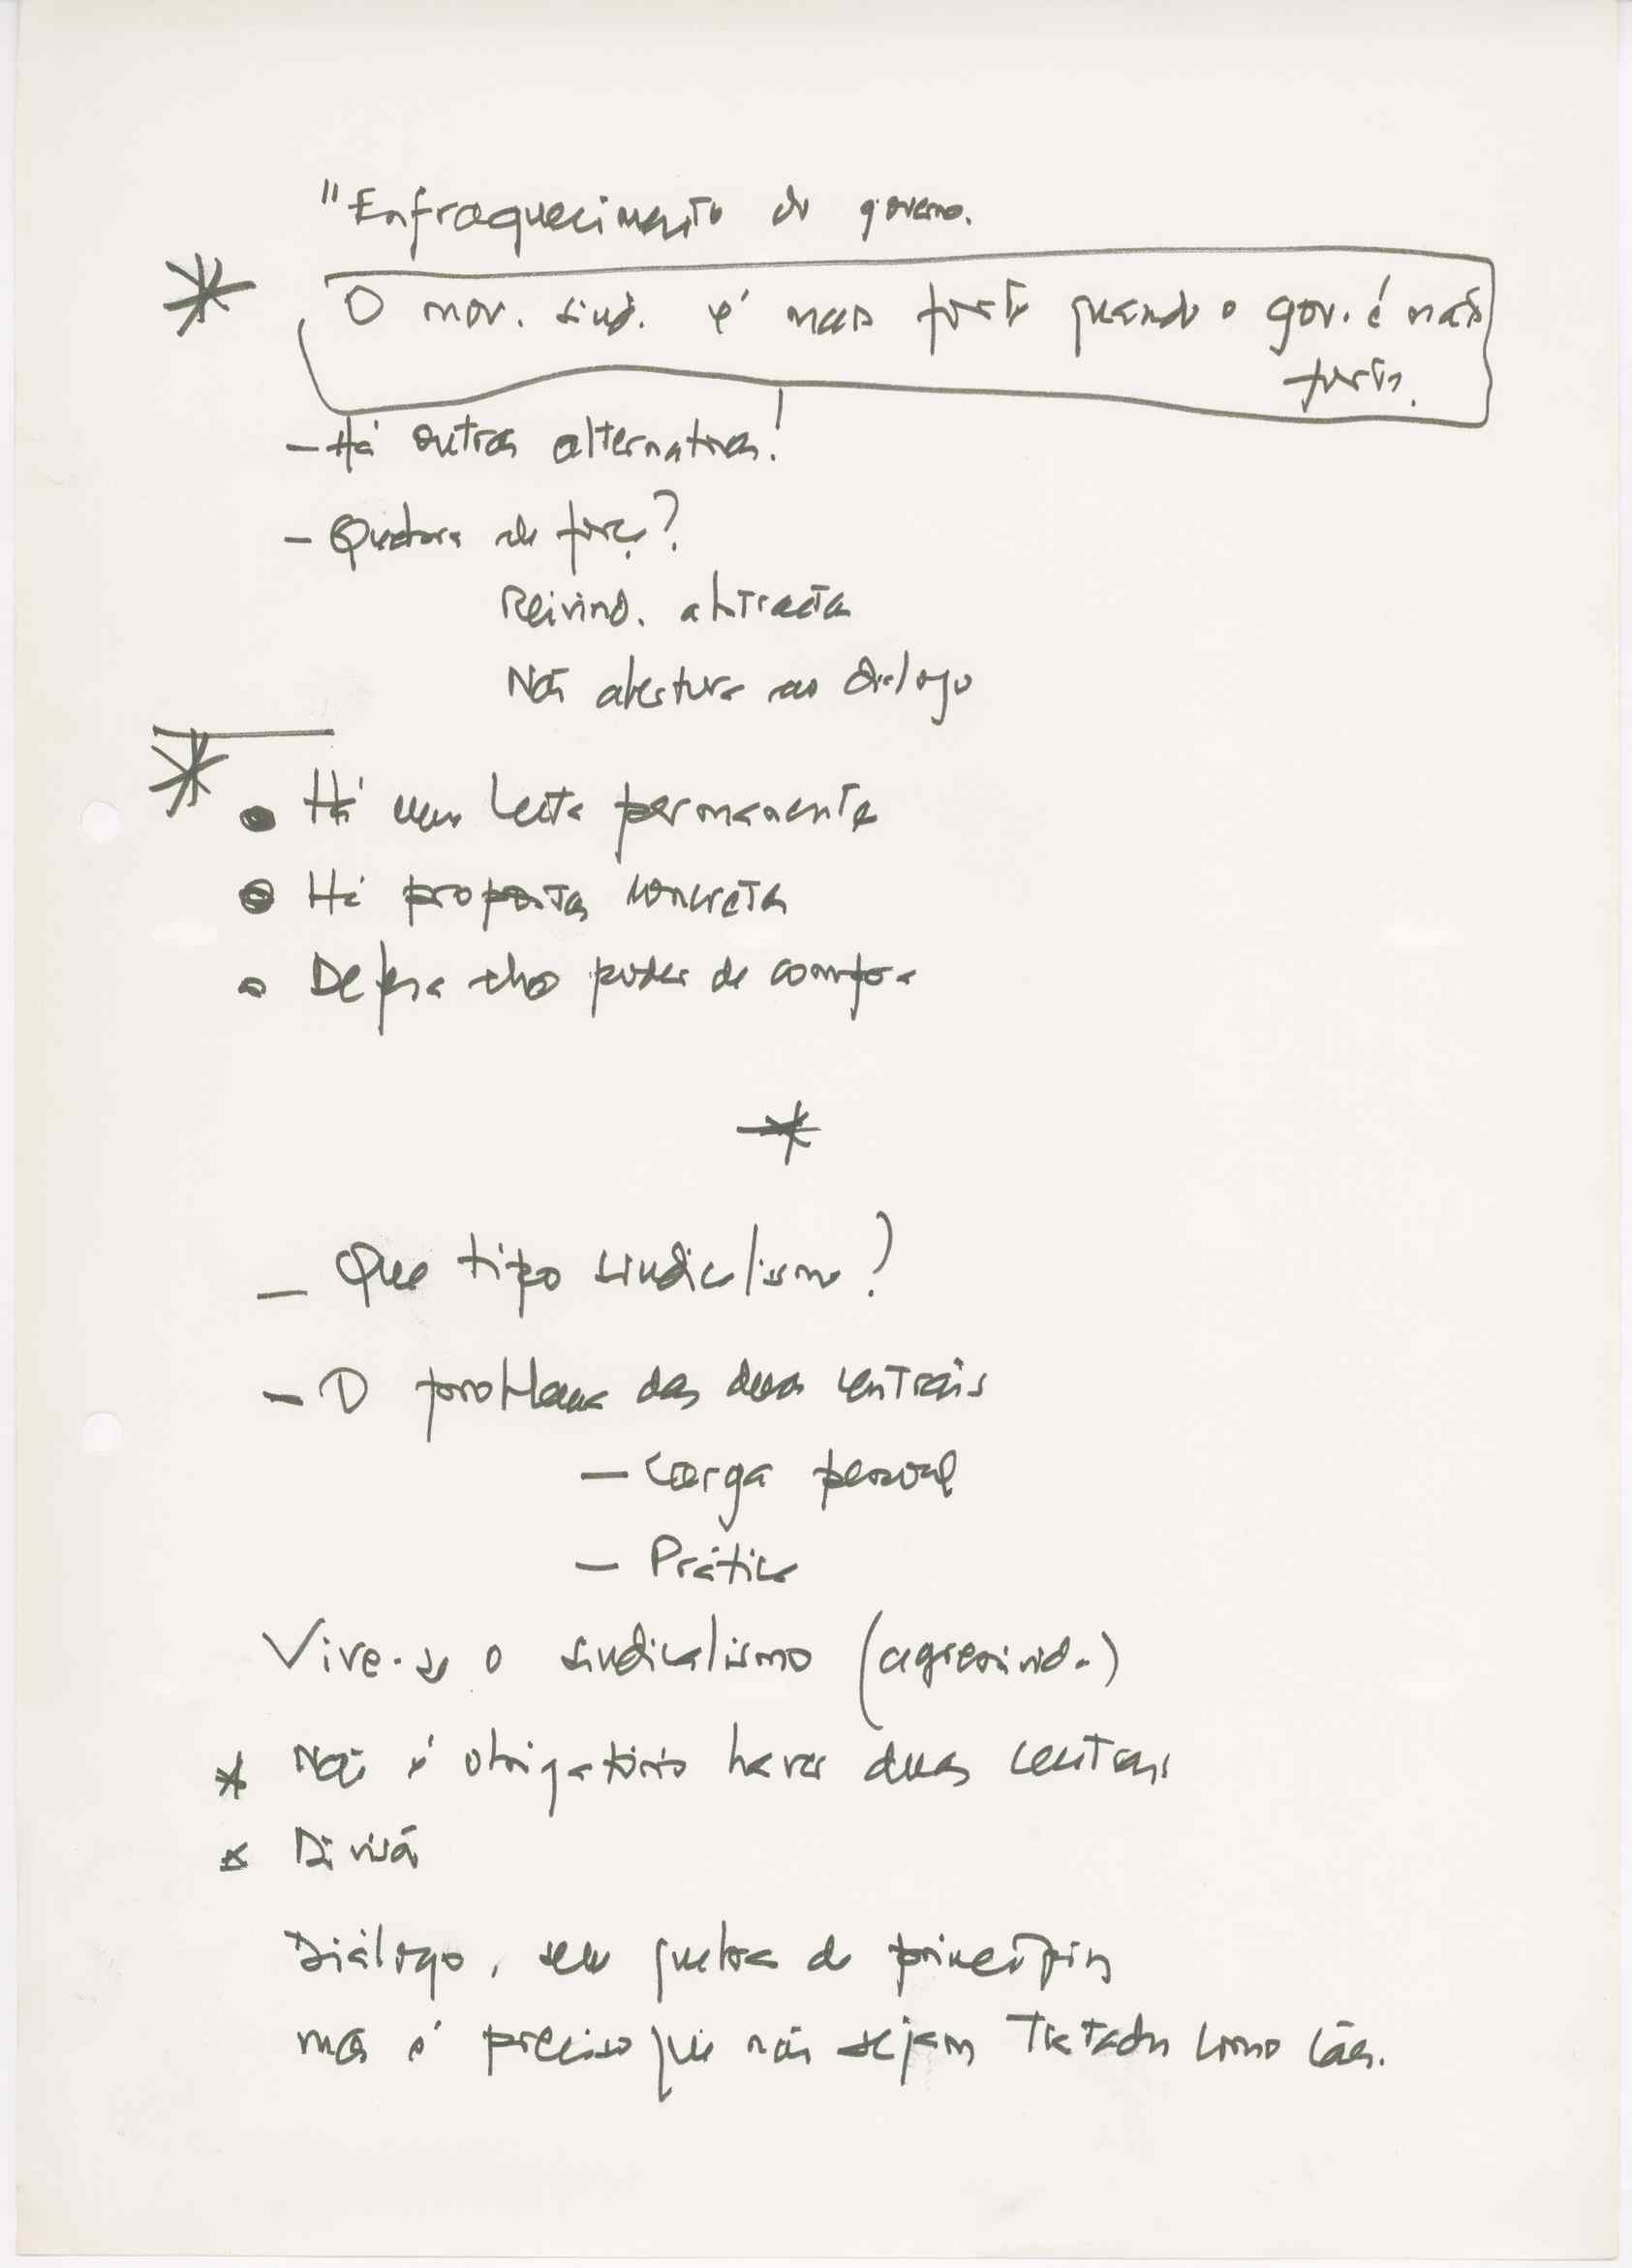 "Enfraquecimento do governo.
* O mov. sind. é mais forte quando o gov. é mais
forte.
- Há outras alternativas!
- Quebra de força?
Reivind. abstracta
Não abertura ao diálogo
* • Há uma luta permanente
• Há proposta concreta
• Defesa do poder de compra
*
- Que tipo sindicalismo?
- O problema das duas centrais
- Carga pessoal
- Prática
Vive-se o sindicalismo (agressivid.)
* Não é obrigatório haver duas centrais
* Divisão
Diálogo, sem quebra de princípios
mas é preciso que não sejam tratados como cães.